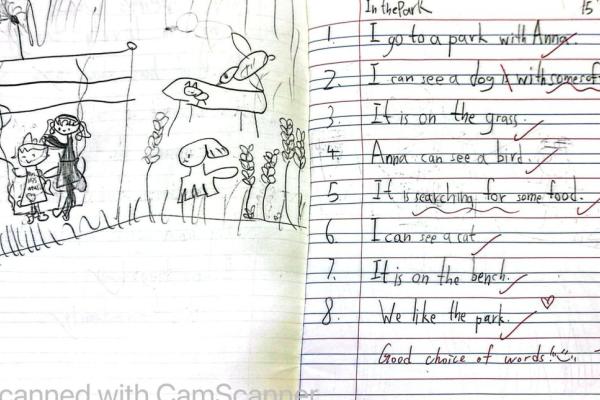 In the Park
15
1. I go to a park with Anna.
2. I can see a dog with some
3. It is on the grass.
4. Anna can see a bird.
5. It is searching for some food.
6. I can see a cat
7. It is on the bench.
8. We like the park.
Good choice of words!
canned with CamScanner